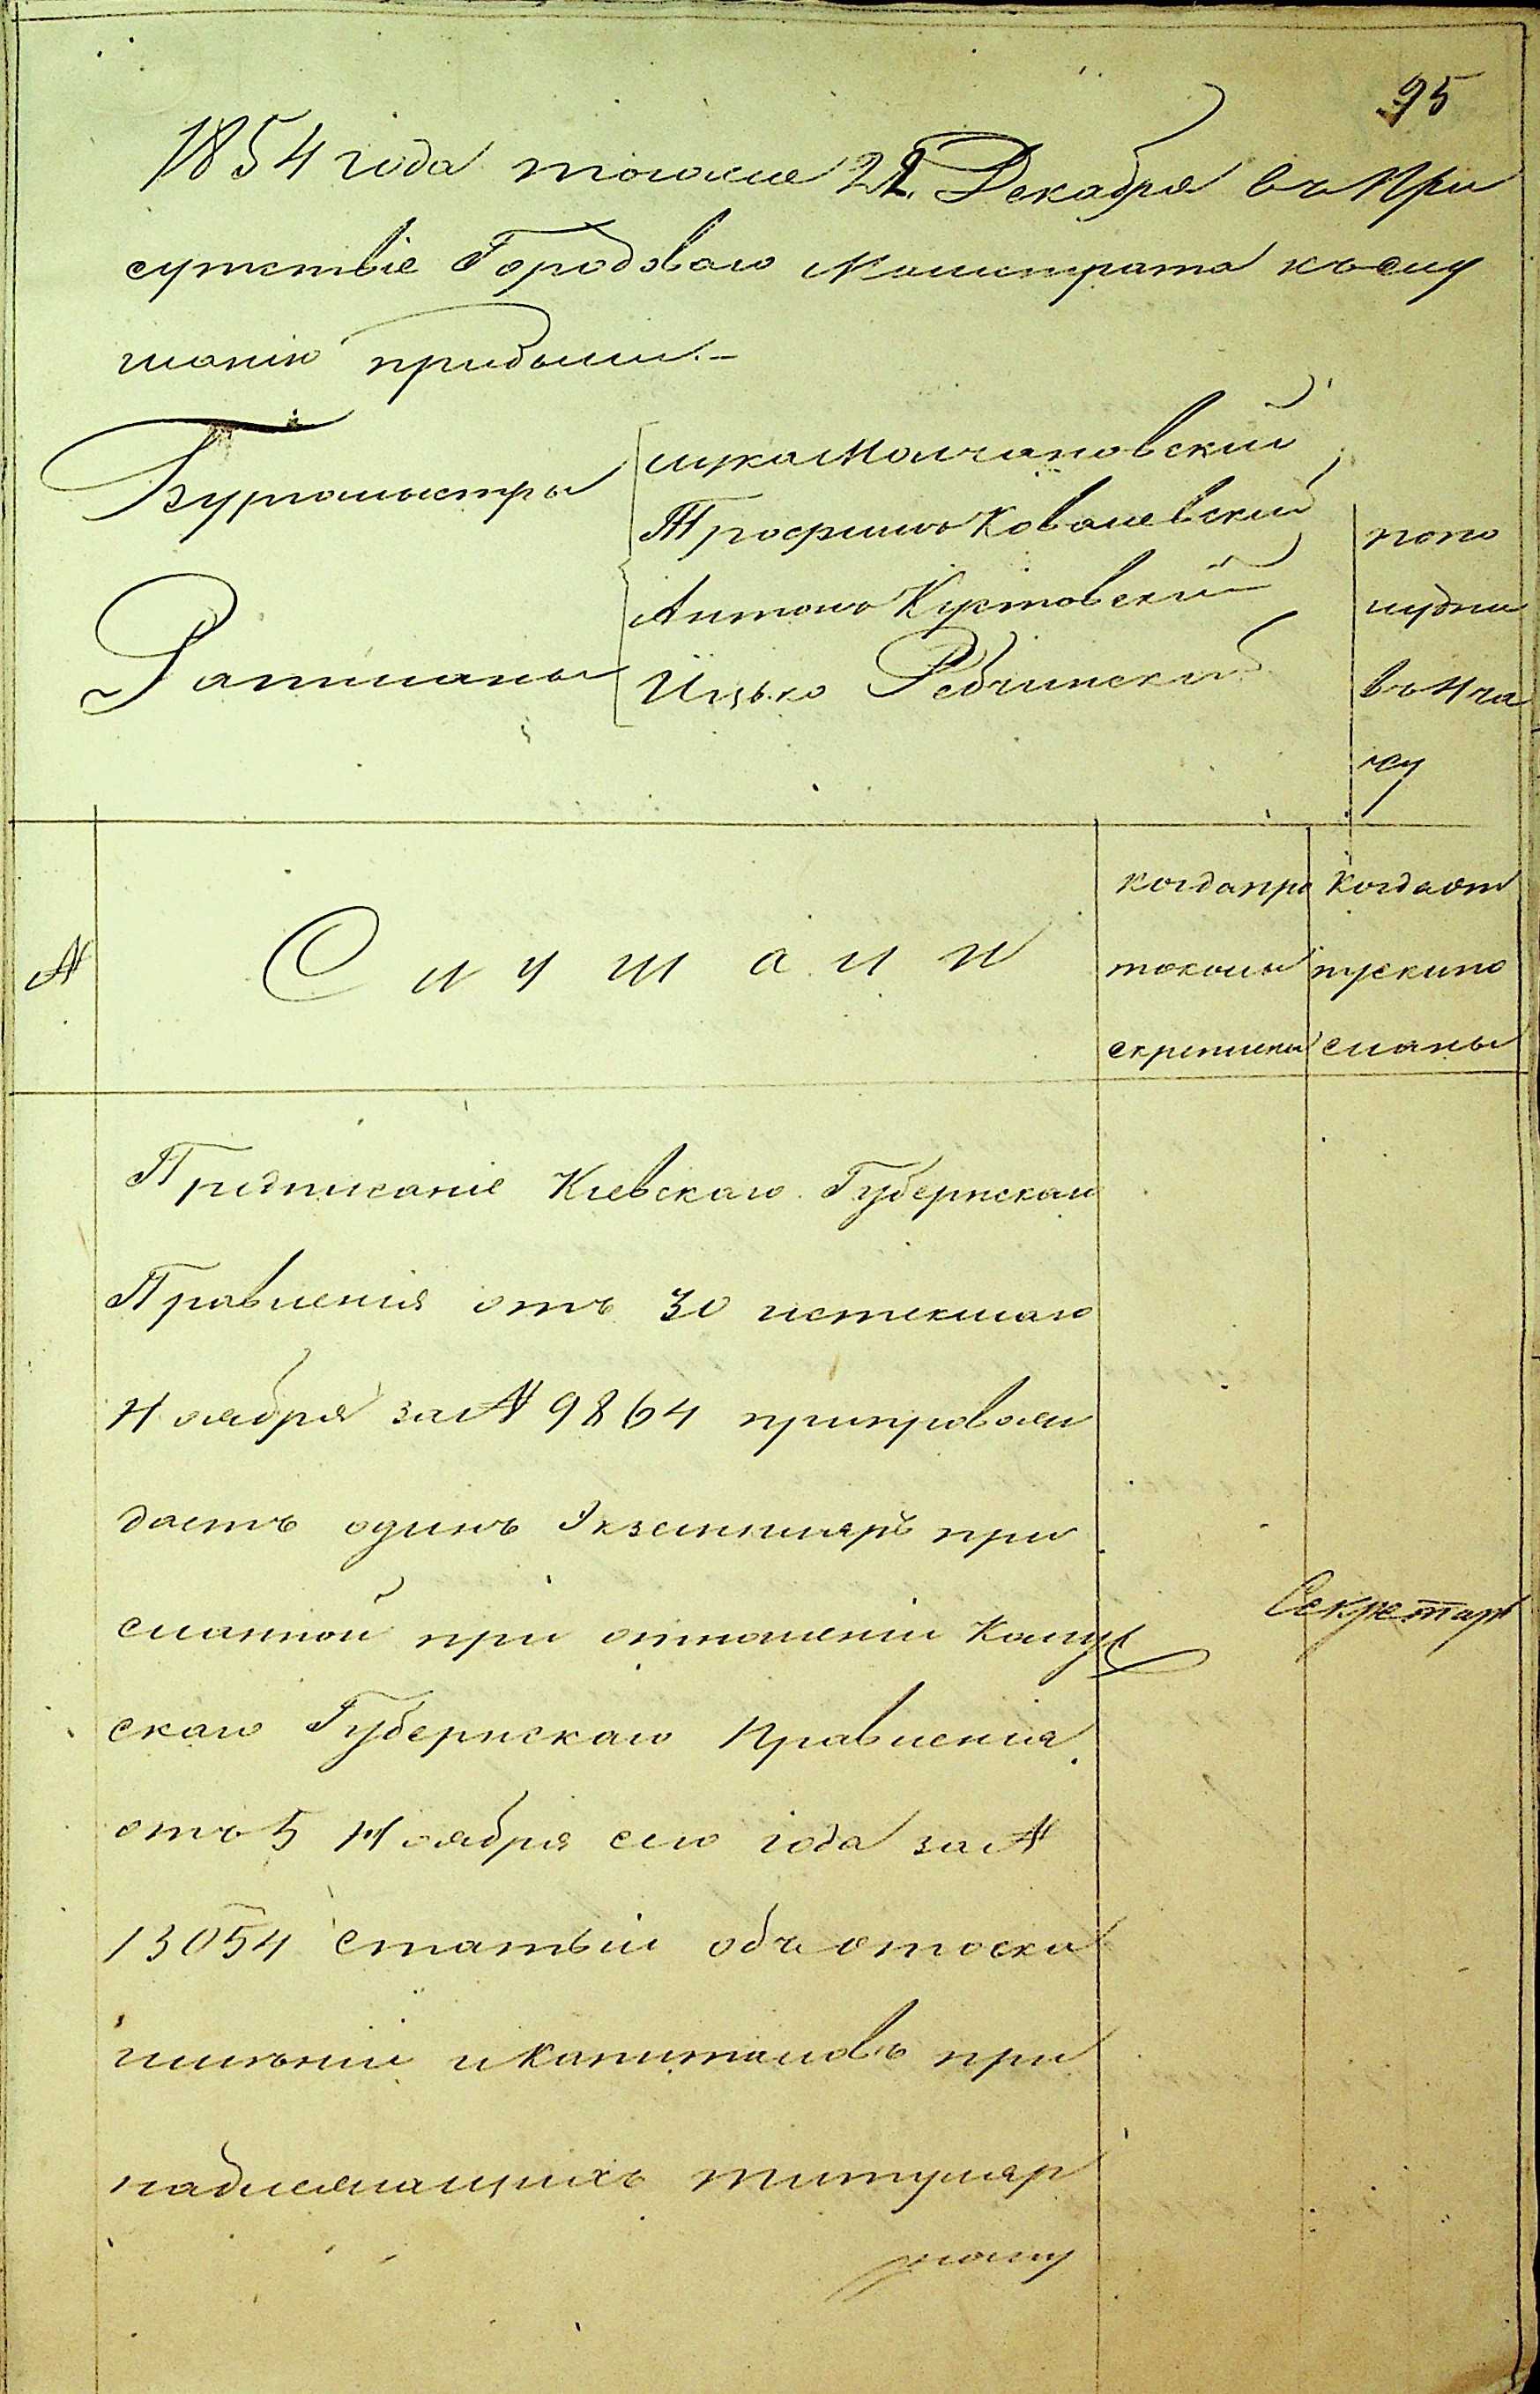 95
1854 года тогоже 22. Декабря въ При
сутствіе Городоваго Магистрата къ слу
шанію прибыли.-
Бургомыстры
Лука Молчановскій
Трофимъ Ковалевскій
Ратманы
Антонъ
Ицько
попо
лудни
въ 4 ча
су
№
Слушали
когда про
токолы
скреплены
Когда от
пуски по
сланы
Предписаніе Кіевскаго Губернскаго
Правленія отъ 30 истекшаго
Ноября за № 9864 припровож
даетъ одинъ Экземпляръ при
сланной при отношеніи Калуж
скаго Губернскаго Правленія
отъ 5 Ноября сего года за №
13054 статьи объ отыска
ніи имѣній и Капиталовъ при
надлежащихъ титуляр
ному
Секретарь